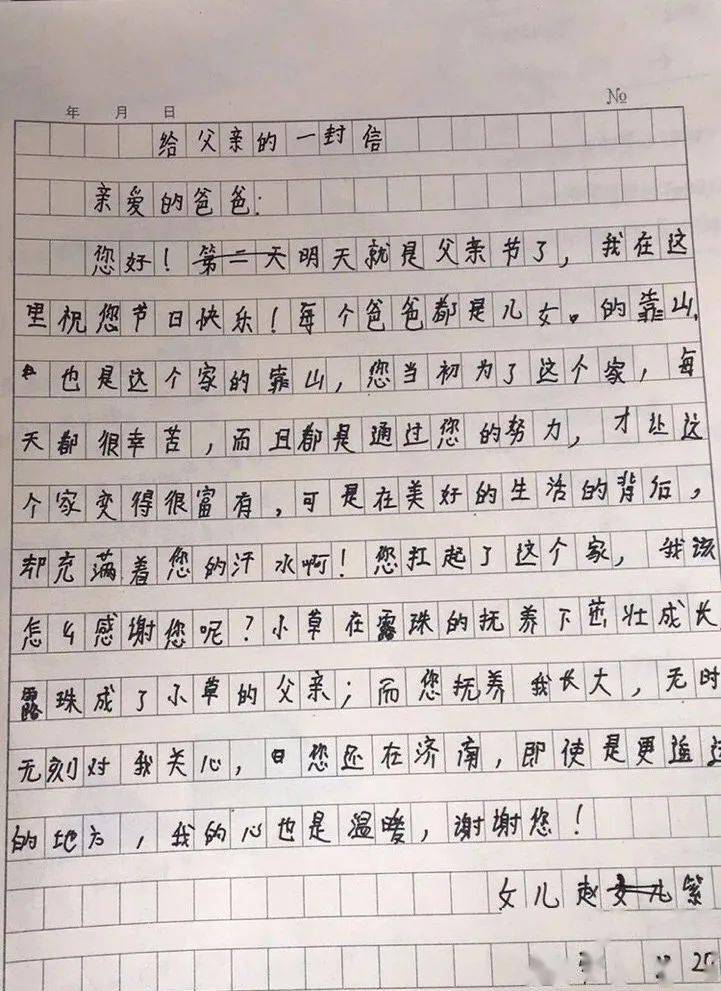 年 月 日 №
给父亲的一封信
亲爱的爸爸:
您好！第二天明天就是父亲节了，我在这
里祝您节日快乐！每个爸爸都是儿女。的靠山,
也是这个家的靠山，您当初为了这个家，每
天都很幸苦，而且都是通过您的努力，才让这
个家变得很富有，可是在美好的生活的背后，
却充满着您的汗水啊！您扛起了这个家，我该
怎么感谢您呢？小草在露珠的抚养下茁壮成长
露珠成了小草的父亲；而您抚养我长大，无时
无刻对我关心，日您还在济南，即使是更遥远
的地方，我的心也是温暖，谢谢您！
女儿赵女儿紫